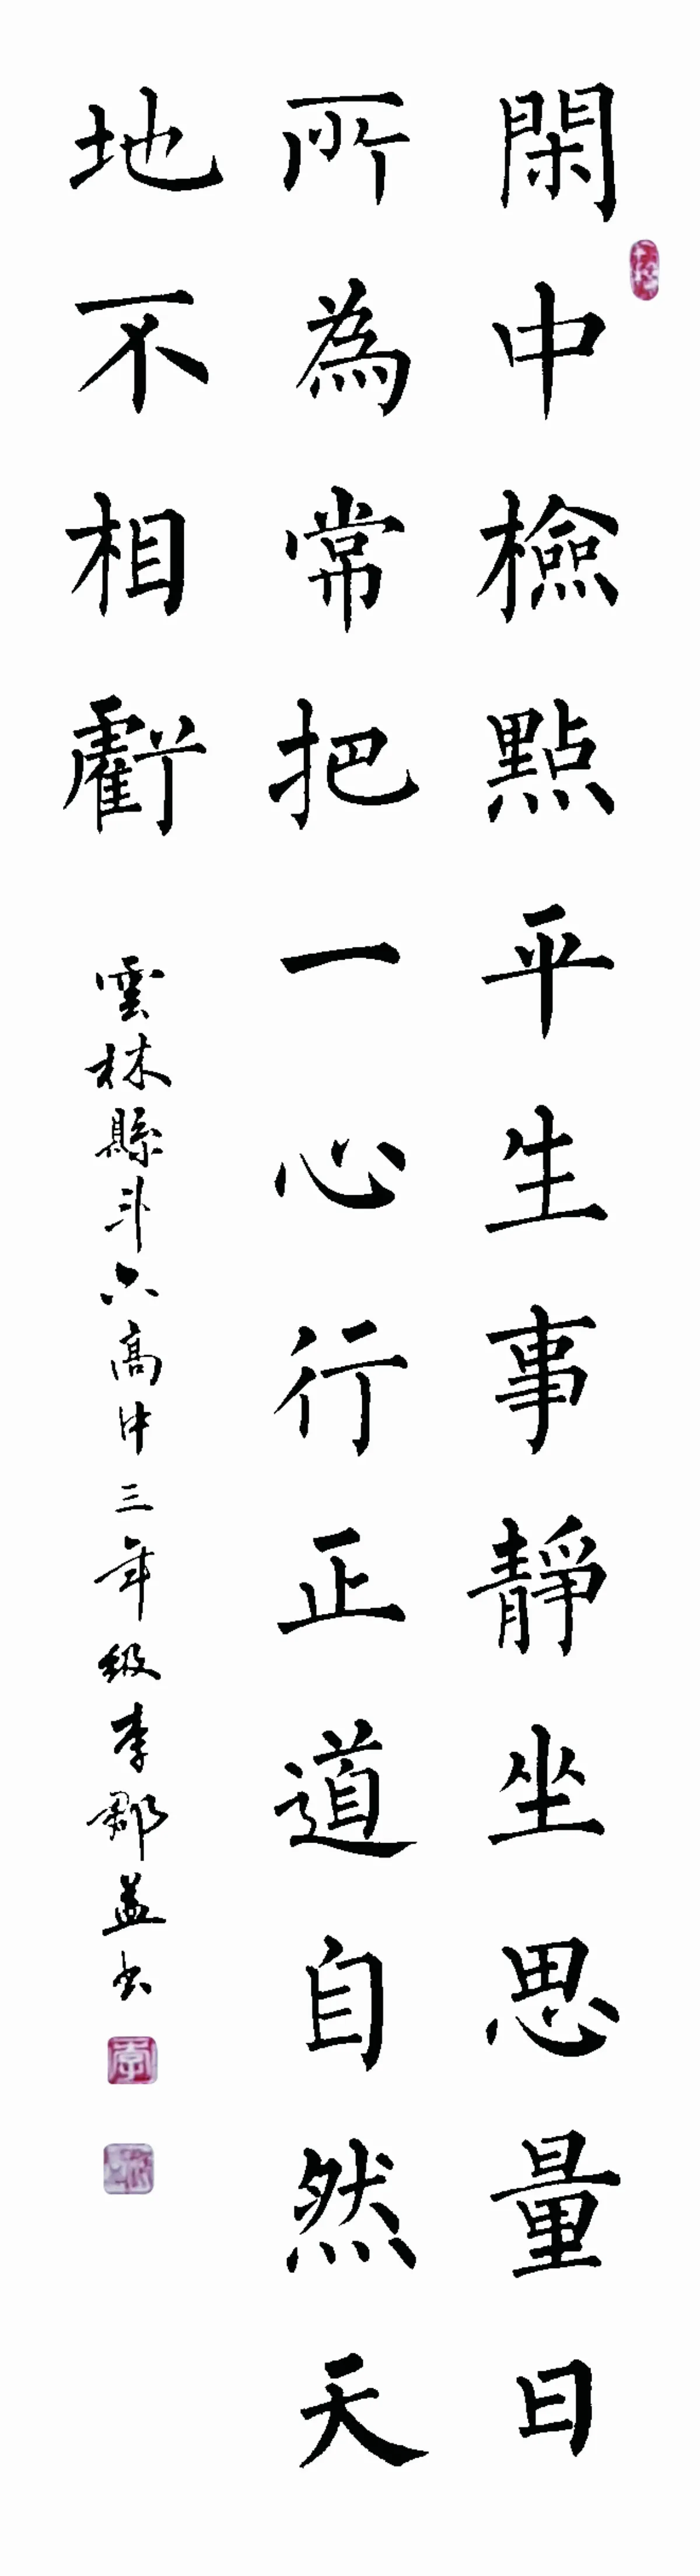 閑中檢點平生事靜坐思量日
所為常把一心行正道自然天
地不相虧
雲林縣斗六高中三年級李郡益書
李